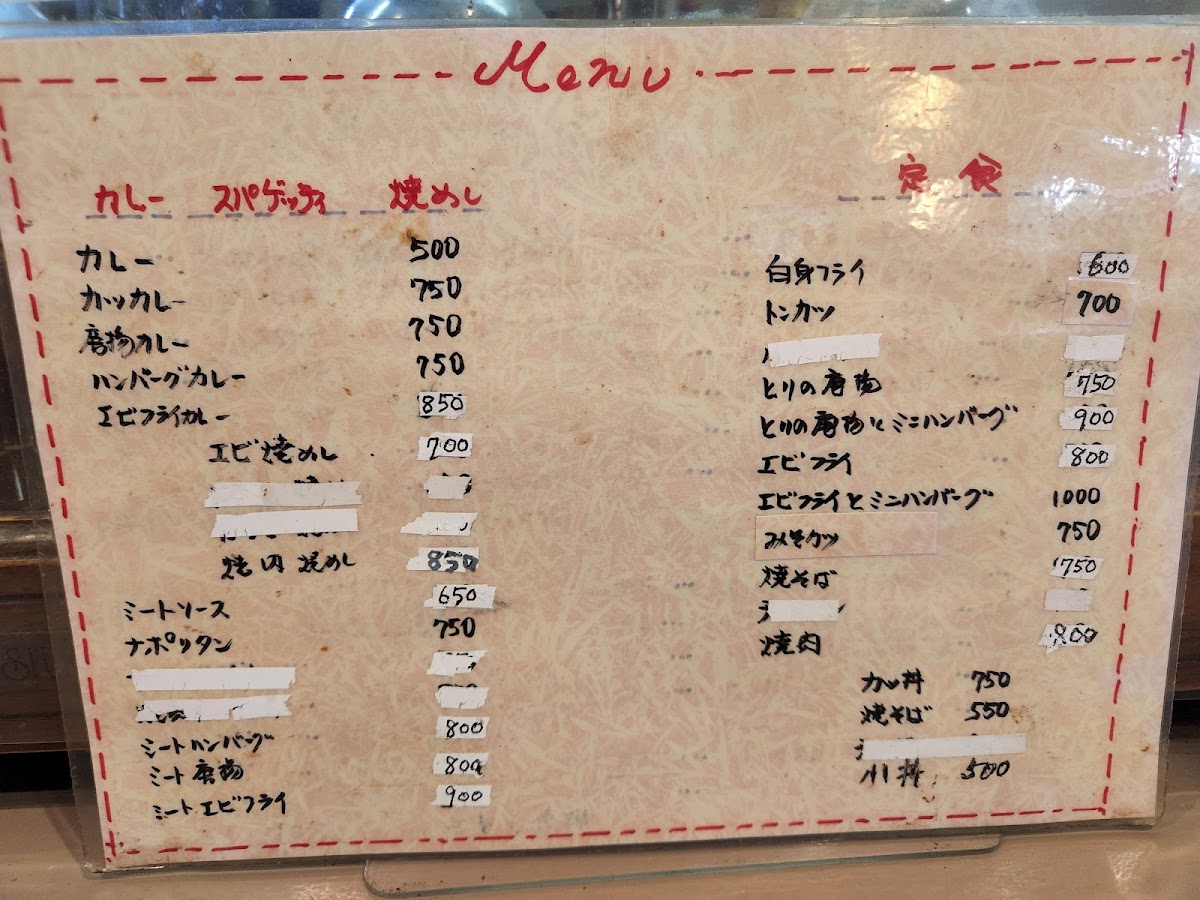 Menu
カレー スパゲッティ 焼めし
カレー 500
カツカレー 750
唐揚カレー 750
ハンバーグカレー 750
エビフライカレー 850
エビ焼めし 700
焼肉焼めし 850
ミートソース 650
ナポリタン 750
ミートハンバーグ 800
ミート唐揚 800
ミートエビフライ 900
定食
白身フライ 600
トンカツ 700
とりの唐揚 750
とりの唐揚とミニハンバーグ 900
エビフライ 800
エビフライとミニハンバーグ 1000
みそカツ 750
焼そば 750
焼肉 800
カツ丼 750
焼そば 550
500